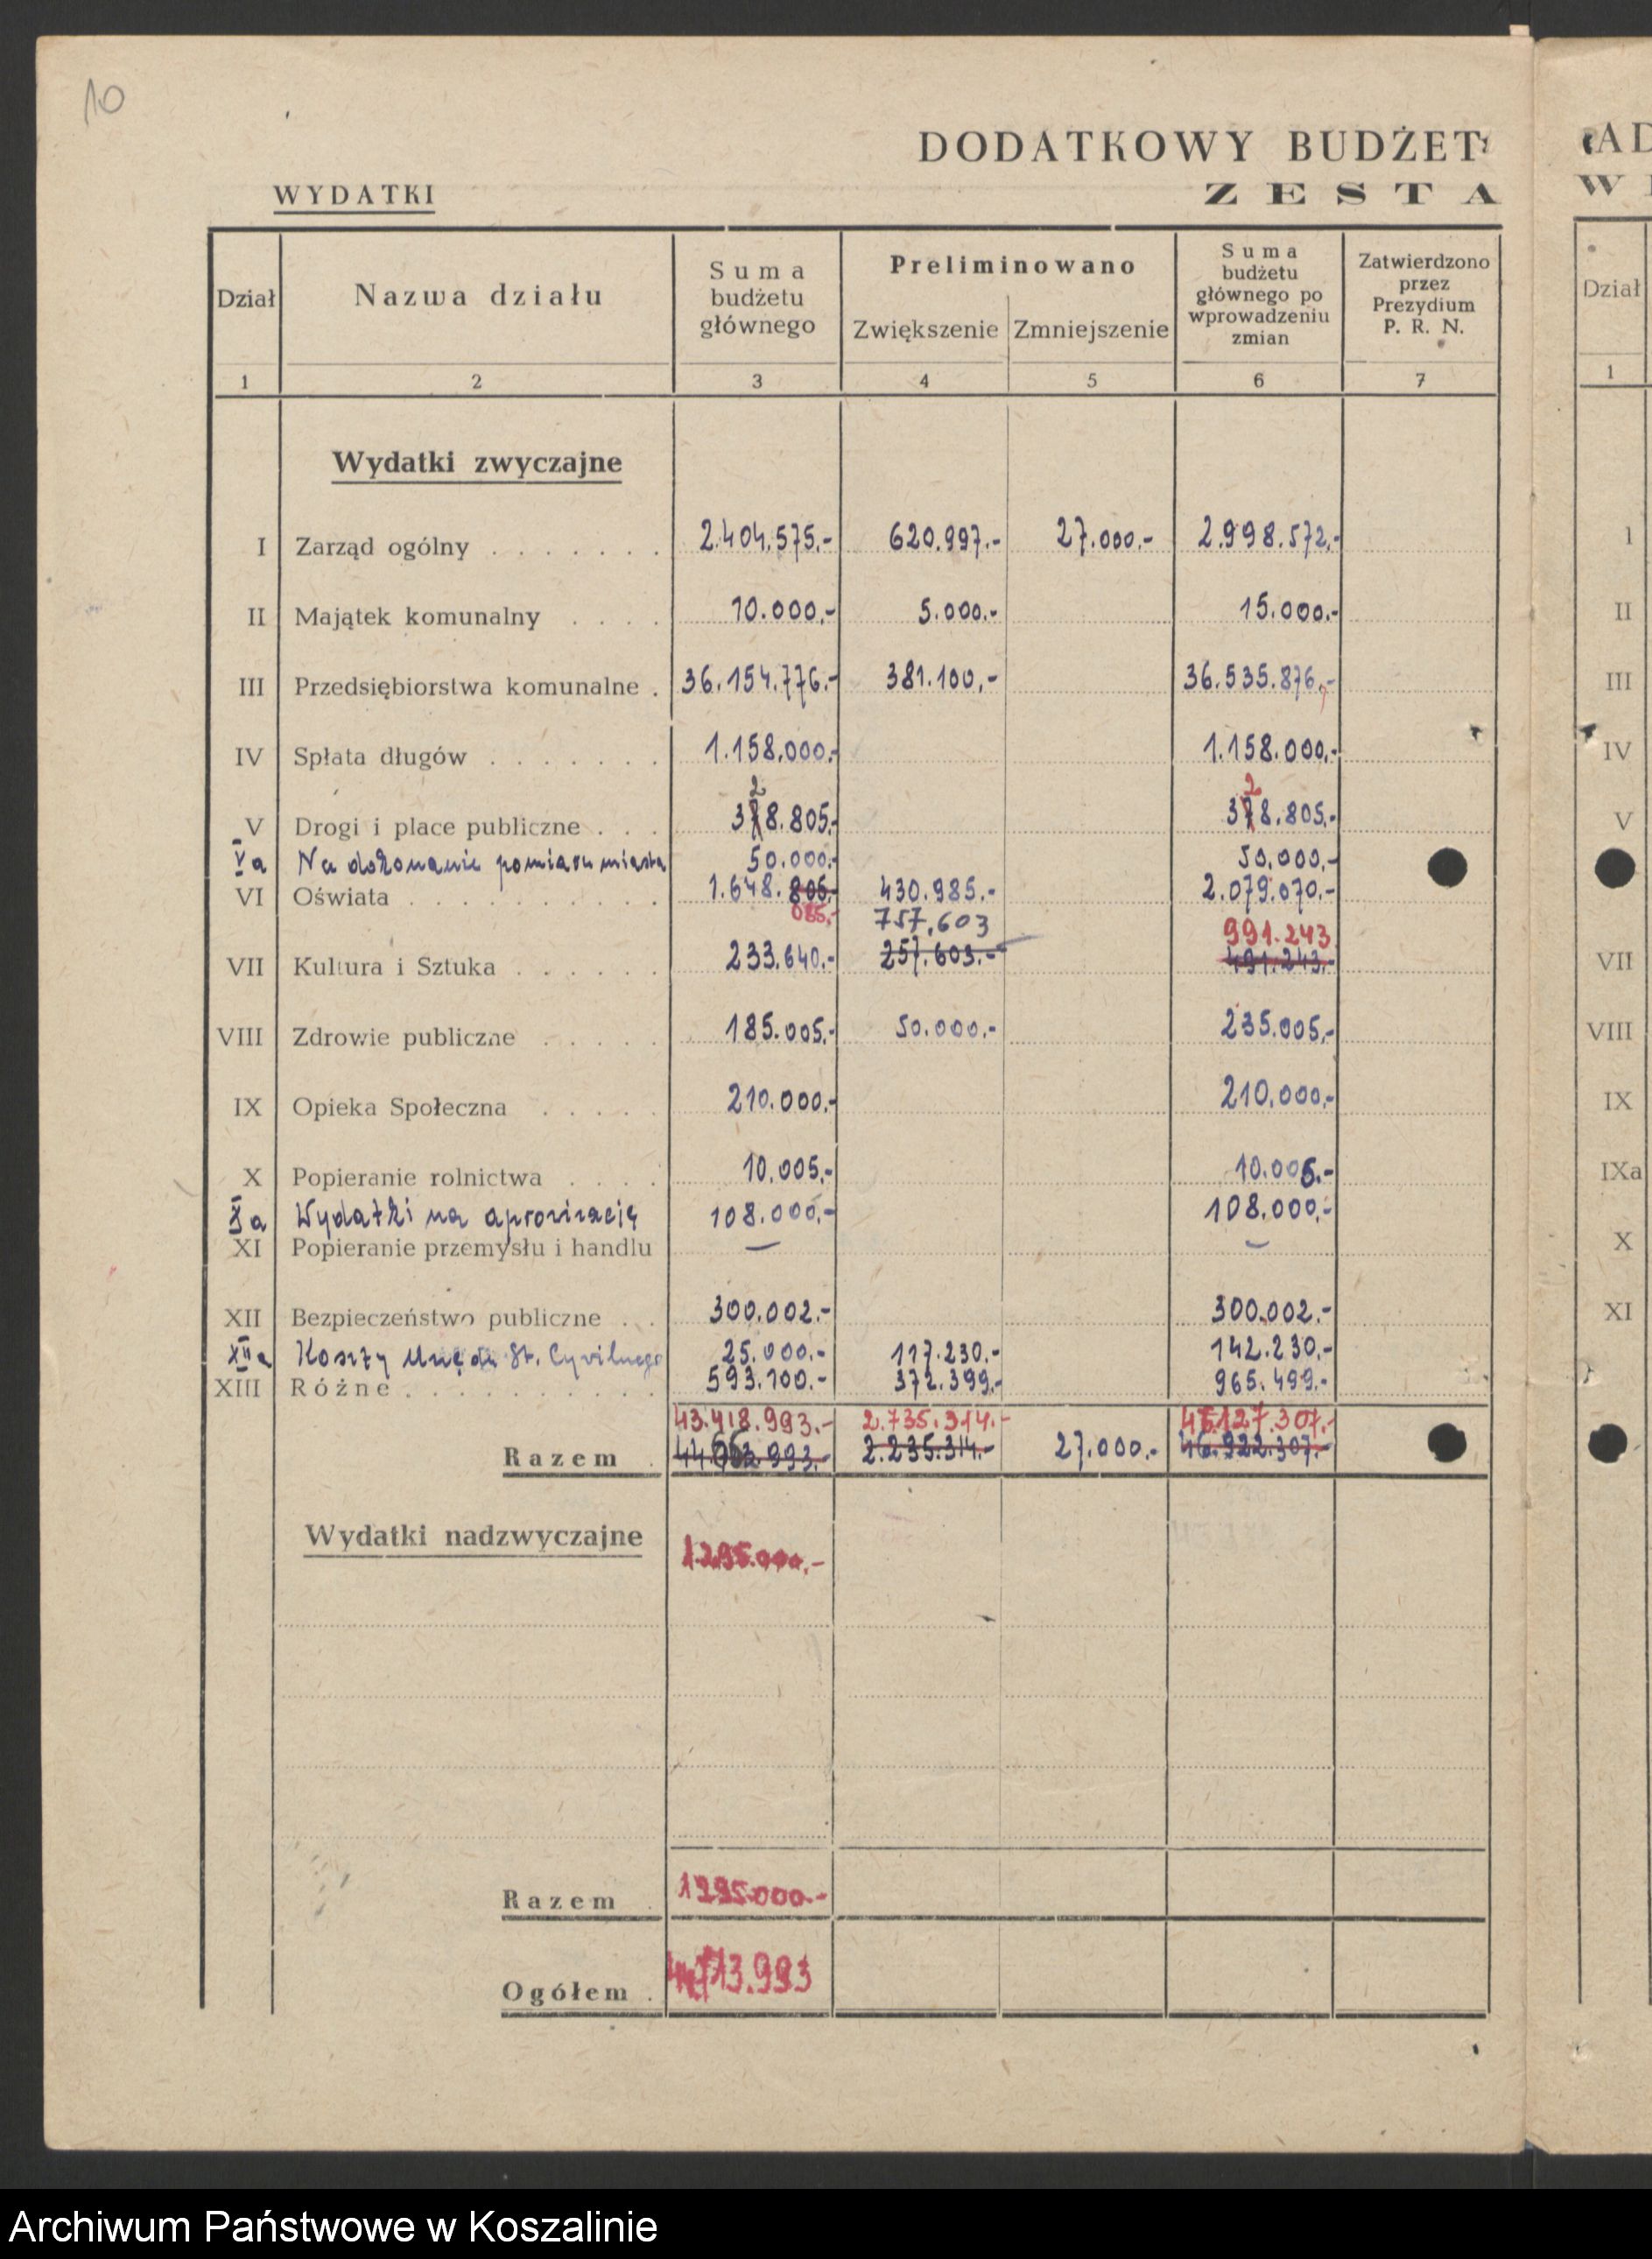 10
DODATKOWY BUDŻET
WYDATKI
ZESTA
Dział
Nazwa działu
Suma budżetu głównego
Preliminowano
Zwiększenie Zmniejszenie
Suma budżetu głównego po wprowadzeniu zmian
Zatwierdzono przez Prezydium P. R. N.
1 2 3 4 5 6 7
Wydatki zwyczajne
I Zarząd ogólny 2.404.575.- 620.997.- 27.000.- 2.998.572.-
II Majątek komunalny 10.000.- 5.000.- 15.000.-
III Przedsiębiorstwa komunalne 36.154.776.- 381.100.- 36.535.876.-
IV Spłata długów 1.158.000.- 1.158.000.-
2 2
V Drogi i place publiczne 378.805.- 378.805.-
Va Na dokonanie pomiaru miasta 50.000.- 50.000.-
VI Oświata 1.648.805.- 430.985.- 2.079.070.-
085.- 757.603 991.243
VII Kultura i Sztuka 233.640.- 257.603.- 491.243.-
VIII Zdrowie publiczne 185.005.- 50.000.- 235.005.-
IX Opieka Społeczna 210.000.- 210.000.-
X Popieranie rolnictwa 10.005.- 10.005.-
Xa Wydatki na aprowizację 108.000.- 108.000.-
XI Popieranie przemysłu i handlu — —
XII Bezpieczeństwo publiczne 300.002.- 300.002.-
XIIa Koszty Urzędu St. Cywilnego 25.000.- 117.230.- 142.230.-
XIII Różne 593.100.- 372.399.- 965.499.-
43.418.993.- 2.735.314.- 127.307.-
Razem 2.235.314.- 27.000.- 46.922.307.-
Wydatki nadzwyczajne
1295.000.-
Razem 1295000.-
Ogółem 713.993
AD
W
Dział
1
I
II
III
IV
V
VII
VIII
IX
IXa
X
XI
Archiwum Państwowe w Koszalinie